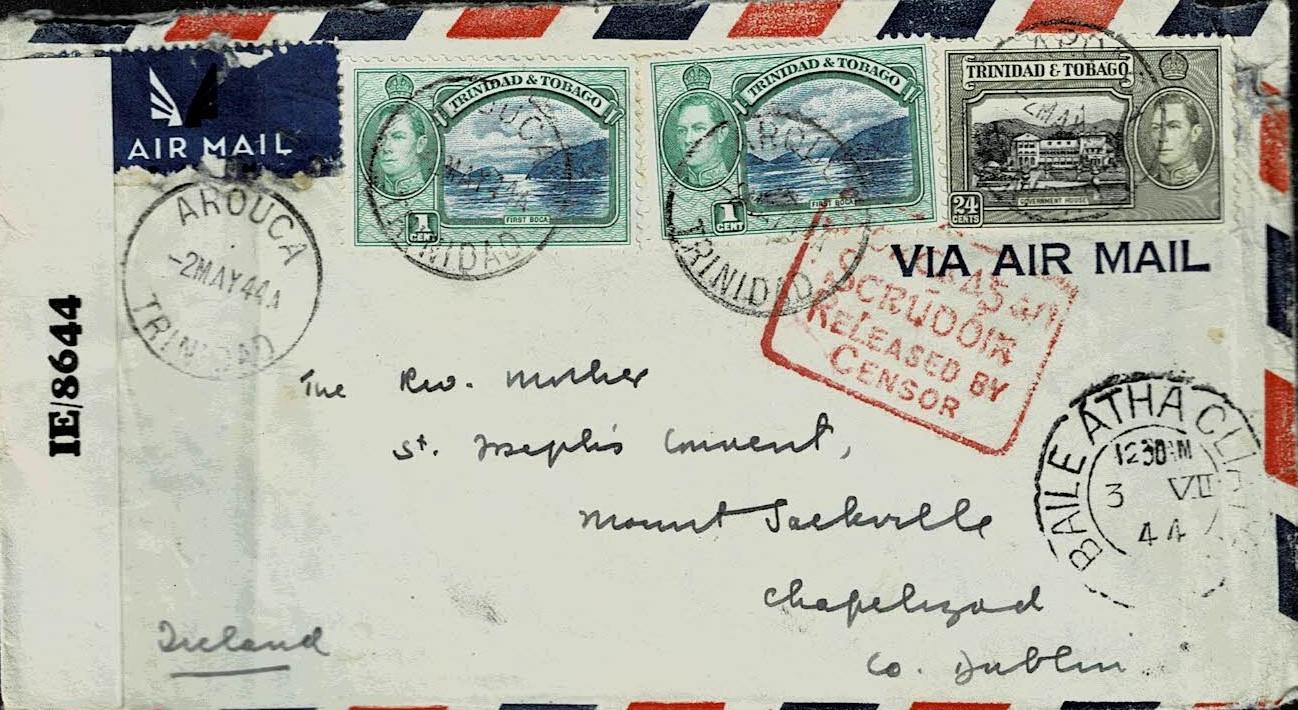 AIR MAIL
TRINIDAD & TOBAGO
1
CENT
FIRST BOCA
TRINIDAD & TOBAGO
1
CENT
FIRST BOCA
TRINIDAD & TOBAGO
24
CENTS
GOVERNMENT HOUSE
AROUCA
-2MAY44A
TRINIDAD
AROUCA
TRINIDAD
AROUCA
TRINIDAD
2MA
VIA AIR MAIL
SCRUDÓIR
RELEASED BY
CENSOR
IE/8644
The Rev. Mother
St. Joseph's Convent,
Mount Sackville
Chapelizod
Co. Dublin
Ireland
BAILE ATHA CLIATH
1230AM
3 VII
44